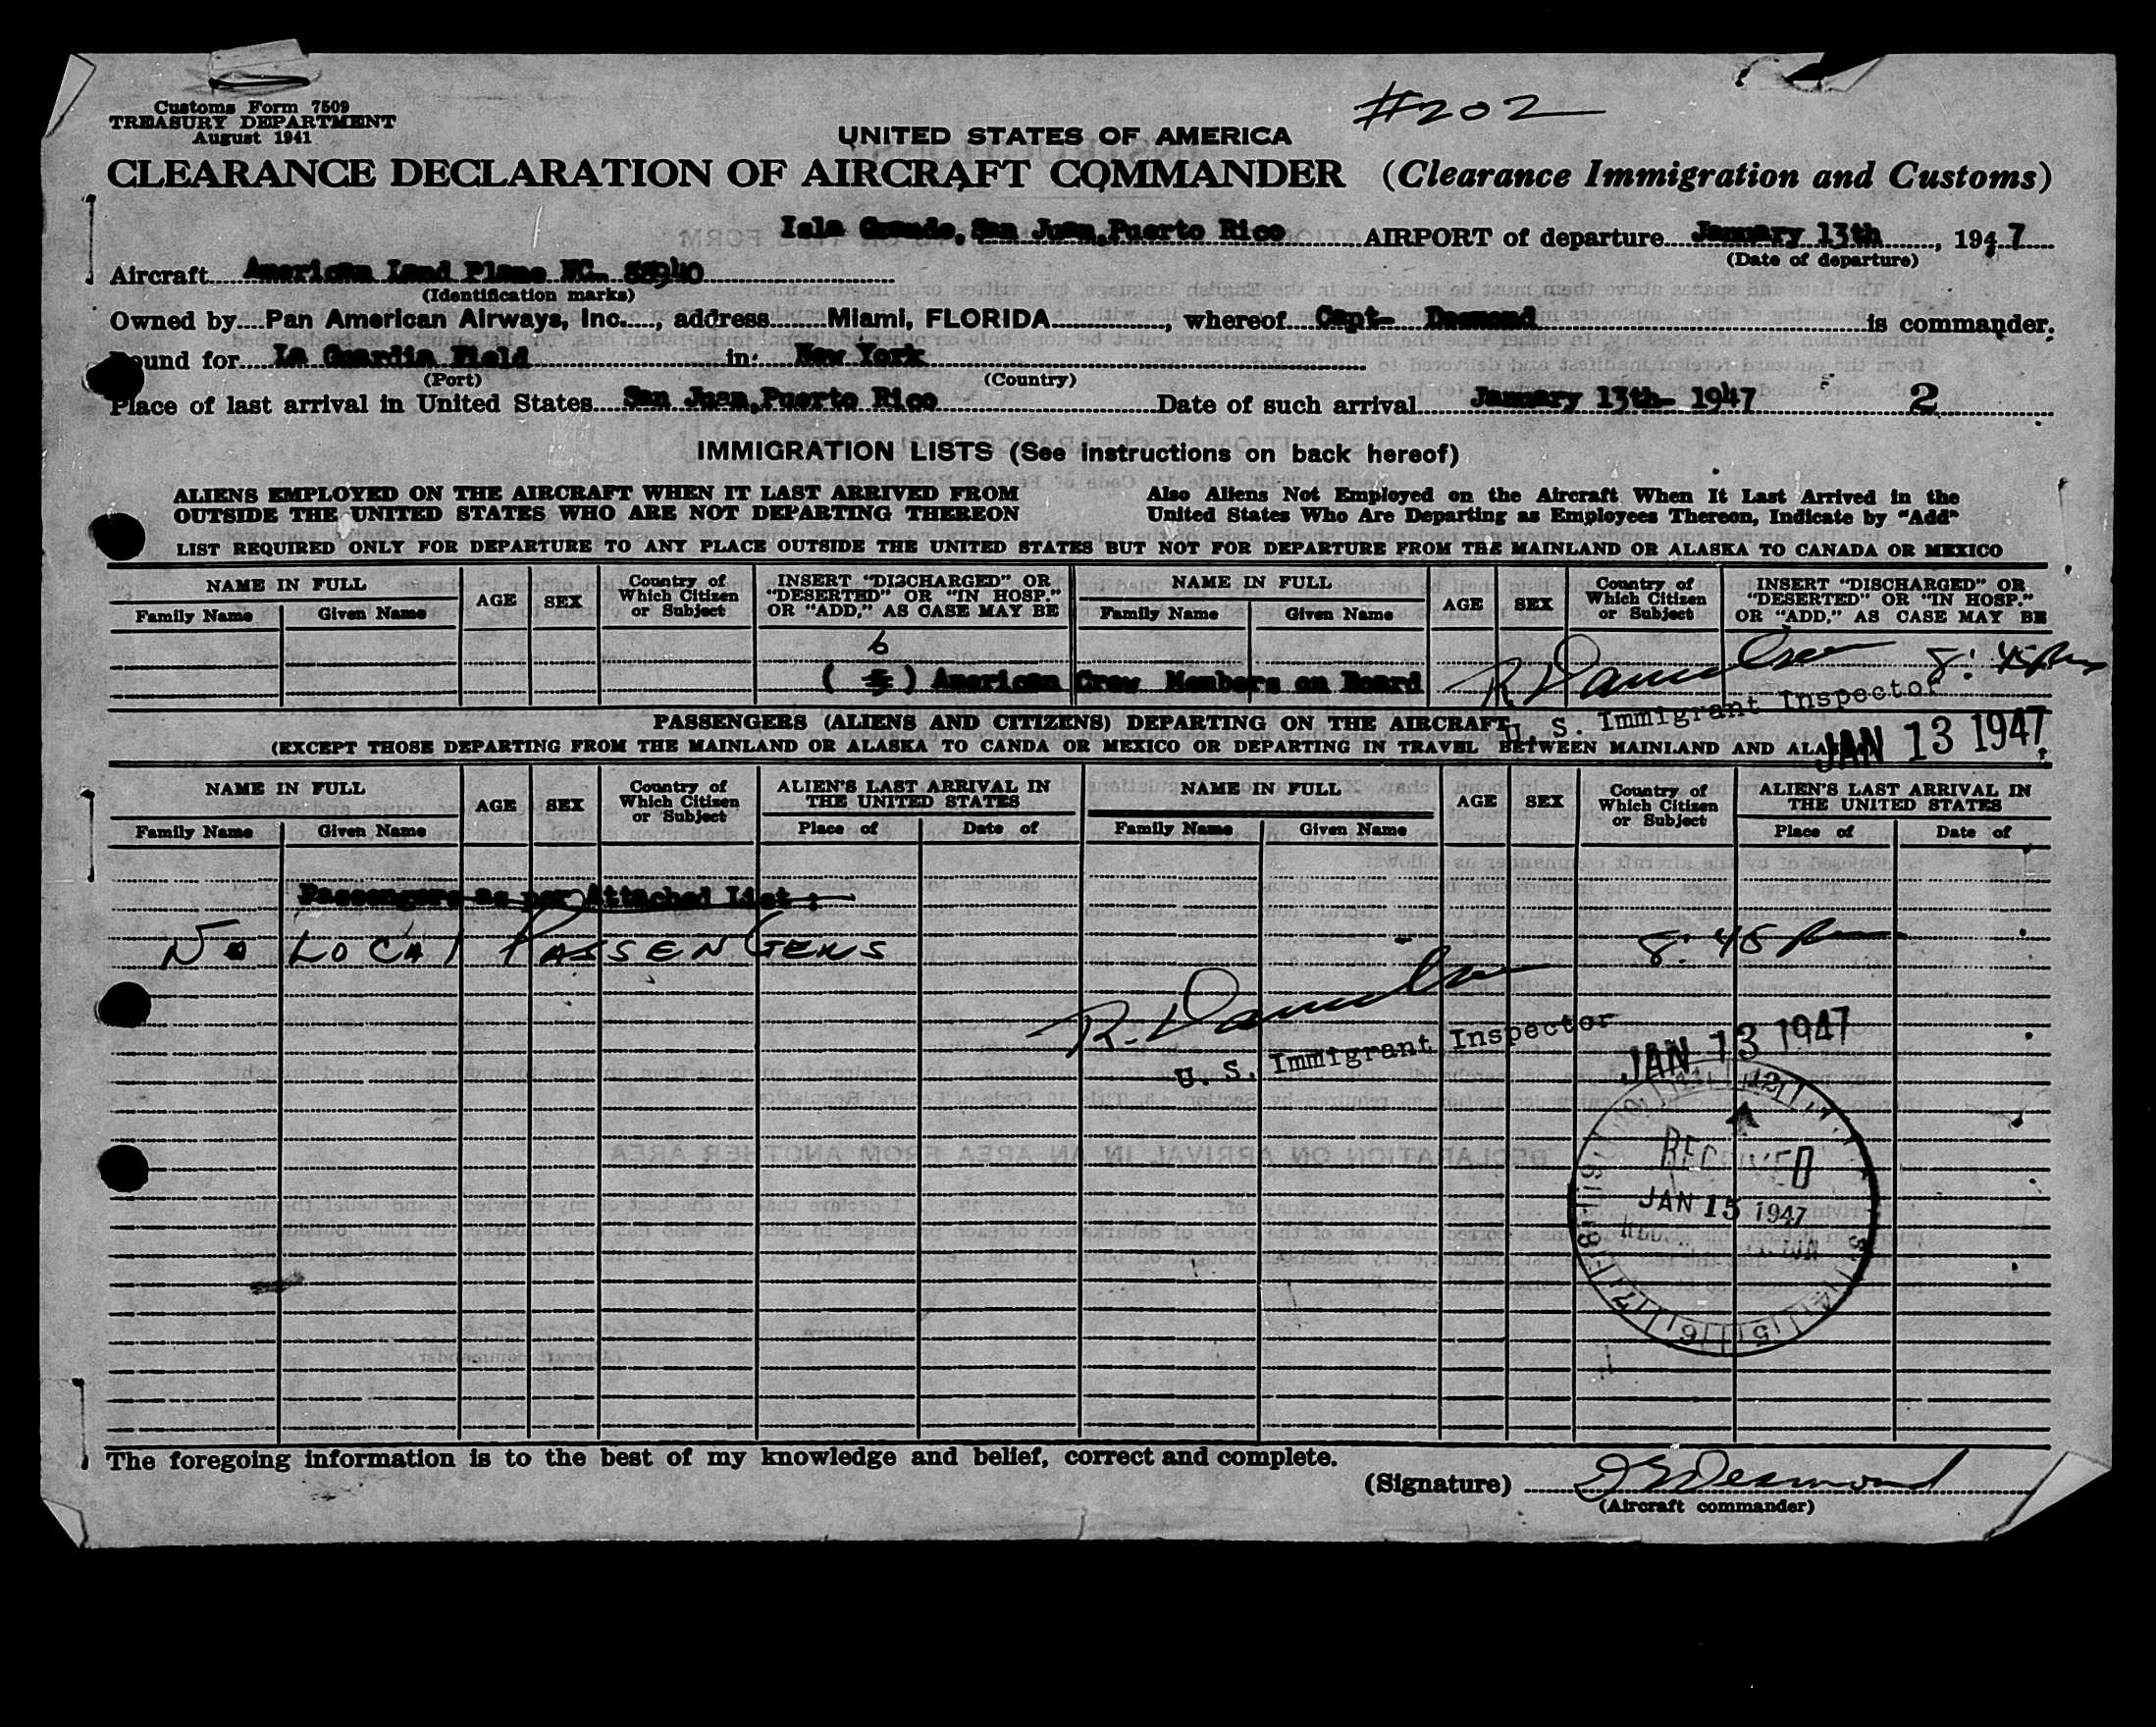 #202
Customs Form 7509
TREASURY DEPARTMENT
August 1941
UNITED STATES OF AMERICA
CLEARANCE DECLARATION OF AIRCRAFT COMMANDER (Clearance Immigration and Customs)
Isla Grande, San Juan, Puerto Rico AIRPORT of departure January 13th, 1947
(Date of departure)
Aircraft American Land Plane NC- 88940
(Identification marks)
Owned by Pan American Airways, Inc., address Miami, FLORIDA, whereof Capt- Desmond is commander.
Bound for La Guardia Field in: New York
(Port) (Country)
Place of last arrival in United States San Juan, Puerto Rico Date of such arrival January 13th- 1947 2
IMMIGRATION LISTS (See instructions on back hereof)
ALIENS EMPLOYED ON THE AIRCRAFT WHEN IT LAST ARRIVED FROM
OUTSIDE THE UNITED STATES WHO ARE NOT DEPARTING THEREON
Also Aliens Not Employed on the Aircraft When It Last Arrived in the
United States Who Are Departing as Employees Thereon, Indicate by "Add"
LIST REQUIRED ONLY FOR DEPARTURE TO ANY PLACE OUTSIDE THE UNITED STATES BUT NOT FOR DEPARTURE FROM THE MAINLAND OR ALASKA TO CANADA OR MEXICO
NAME IN FULL
Family Name Given Name
AGE SEX
Country of
Which Citizen
or Subject
INSERT "DISCHARGED" OR
"DESERTED" OR "IN HOSP."
OR "ADD," AS CASE MAY BE
NAME IN FULL
Family Name Given Name
AGE SEX
Country of
Which Citizen
or Subject
INSERT "DISCHARGED" OR
"DESERTED" OR "IN HOSP."
OR "ADD," AS CASE MAY BE
6
( 5 ) American Crew Members on Board
8:45 pm
U. S. Immigrant Inspector
JAN 13 1947
PASSENGERS (ALIENS AND CITIZENS) DEPARTING ON THE AIRCRAFT
(EXCEPT THOSE DEPARTING FROM THE MAINLAND OR ALASKA TO CANDA OR MEXICO OR DEPARTING IN TRAVEL BETWEEN MAINLAND AND
NAME IN FULL
Family Name Given Name
AGE SEX
Country of
Which Citizen
or Subject
ALIEN'S LAST ARRIVAL IN
THE UNITED STATES
Place of Date of
NAME IN FULL
Family Name Given Name
AGE SEX
Country of
Which Citizen
or Subject
ALIEN'S LAST ARRIVAL IN
THE UNITED STATES
Place of Date of
Passengers as per Attached List :
No LOCAl PASSENGERS
8:45 pm
U. S. Immigrant Inspector
JAN 13 1947
RECEIVED
JAN 15 1947
The foregoing information is to the best of my knowledge and belief, correct and complete.
(Signature) Desmond
(Aircraft commander)